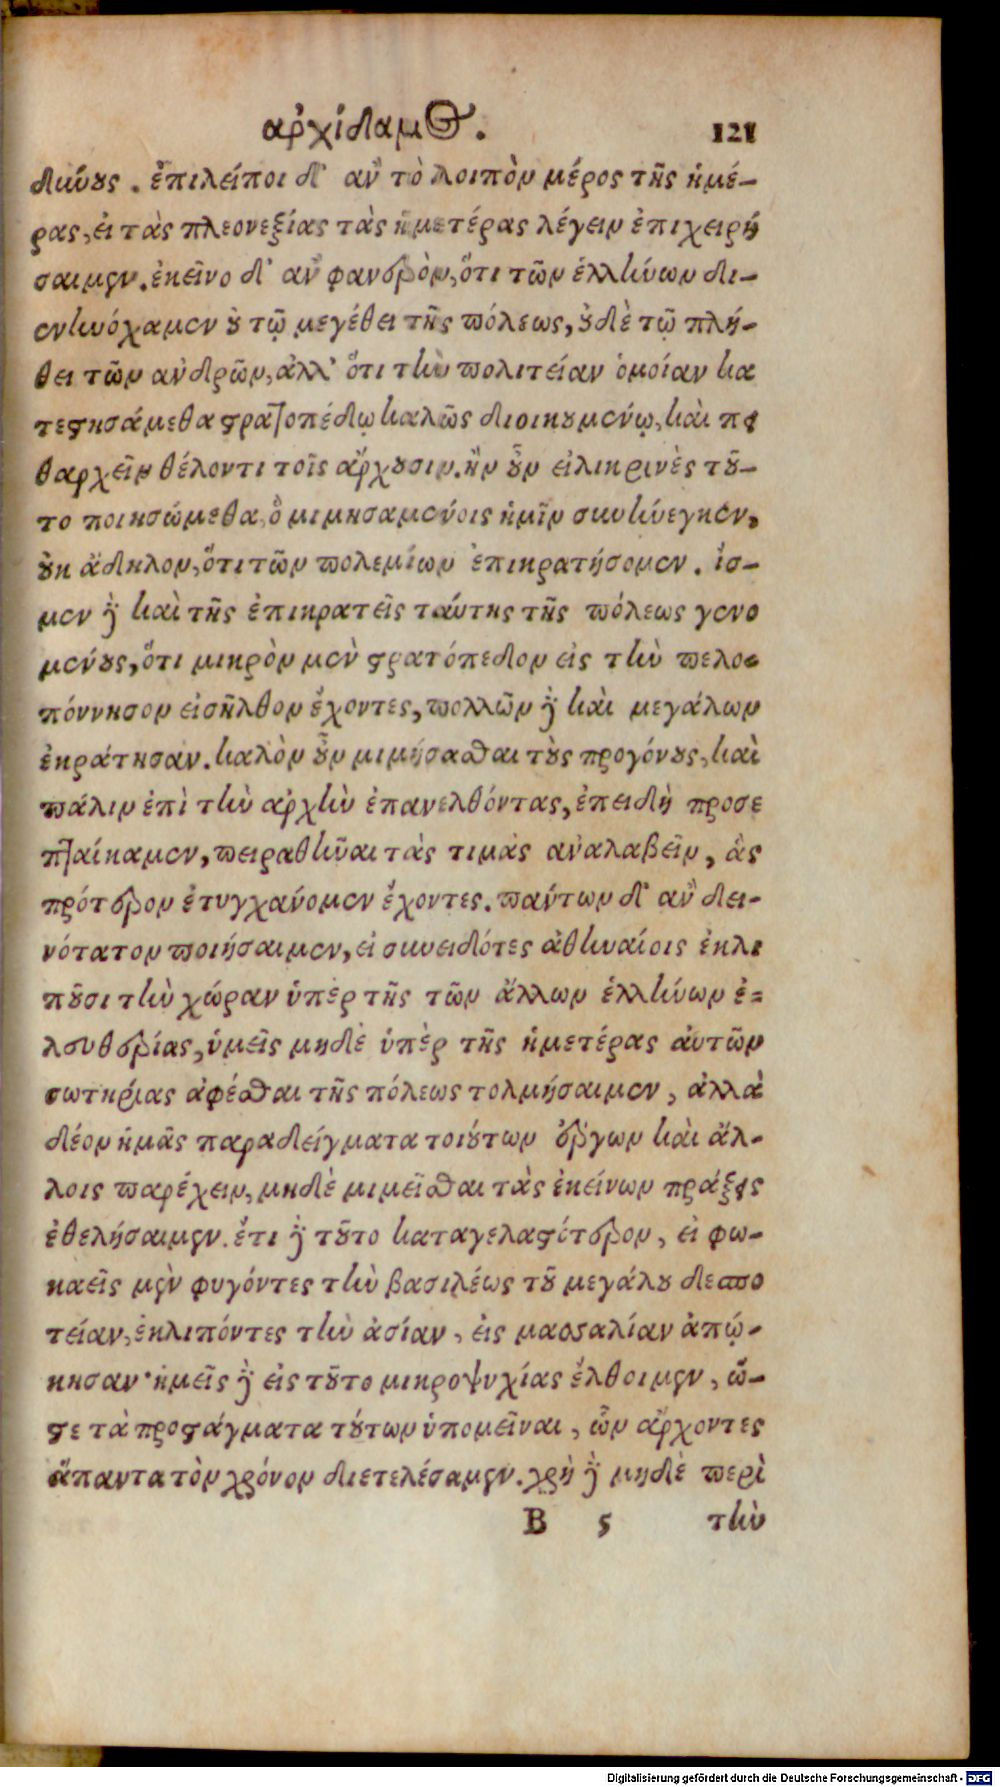 ἀρχίδαμος. 121
δικύους. ἐπιλείποι δ' ἂν τὸ λοιπὸν μέρος τῆς ἡμέ-
ρας, εἰ τὰς πλεονεξίας τὰς ἡμετέρας λέγειν ἐπιχειρή
σαιμεν. ἐκεῖνο δ' ἂν φανερὸν, ὅτι τῶν ἑλλήνων δι-
ενηνόχαμεν οὐ τῷ μεγέθει τῆς πόλεως, οὐδὲ τῷ πλή-
θει τῶν ἀνδρῶν, ἀλλ' ὅτι τὴν πολιτείαν ὁμοίαν κα
τεστησάμεθα στρατοπέδῳ καλῶς διοικουμένῳ, καὶ πει
θαρχεῖν θέλοντι τοῖς ἄρχουσιν. ἢν οὖν εἰλικρινὲς τοῦ-
το ποιησώμεθα, ὃ μιμησαμένοις ἡμῖν συνήνεγκεν,
οὐκ ἄδηλον, ὅτι τῶν πολεμίων ἐπικρατήσομεν. ἴσ-
μεν δὲ καὶ τῆς ἐπικρατεῖς ταύτης τῆς πόλεως γενο
μένους, ὅτι μικρὸν μὲν στρατόπεδον εἰς τὴν πελο-
πόννησον εἰσῆλθον ἔχοντες, πολλῶν δὲ καὶ μεγάλων
ἐκράτησαν. καλὸν οὖν μιμήσασθαι τοὺς προγόνους, καὶ
πάλιν ἐπὶ τὴν ἀρχὴν ἐπανελθόντας, ἐπειδὴ προσε
πταίκαμεν, πειραθῆναι τὰς τιμὰς ἀναλαβεῖν, ἃς
πρότερον ἐτυγχάνομεν ἔχοντες. πάντων δ' ἂν δει-
νότατον ποιήσαιμεν, εἰ συνειδότες ἀθηναίοις ἐκλι
ποῦσι τὴν χώραν ὑπὲρ τῆς τῶν ἄλλων ἑλλήνων ἐ-
λευθερίας, ὑμεῖς μηδὲ ὑπὲρ τῆς ἡμετέρας αὐτῶν
σωτηρίας ἀφέσθαι τῆς πόλεως τολμήσαιμεν, ἀλλὰ
δέον ἡμᾶς παραδείγματα τοιούτων ἔργων καὶ ἄλ-
λοις παρέχειν, μηδὲ μιμεῖσθαι τὰς ἐκείνων πράξεις
ἐθελήσαιμεν. ἔτι δὲ τοῦτο καταγελαστότερον, εἰ φω-
καεῖς μὲν φυγόντες τὴν βασιλέως τοῦ μεγάλου δεσπο
τείαν, ἐκλιπόντες τὴν ἀσίαν, εἰς μασσαλίαν ἀπῴ-
κησαν· ἡμεῖς δὲ εἰς τοῦτο μικροψυχίας ἔλθοιμεν, ὥ-
στε τὰ προστάγματα τούτων ὑπομεῖναι, ὧν ἄρχοντες
ἅπαντα τὸν χρόνον διετελέσαμεν. χρὴ δὲ μηδὲ περὶ
B 5 τὴν
Digitalisierung gefördert durch die Deutsche Forschungsgemeinschaft - DFG